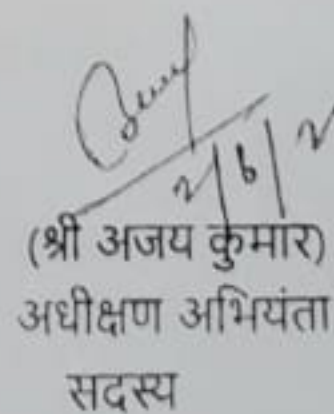 2/6/2
(श्री अजय कुमार)
अधीक्षण अभियंता
सदस्य